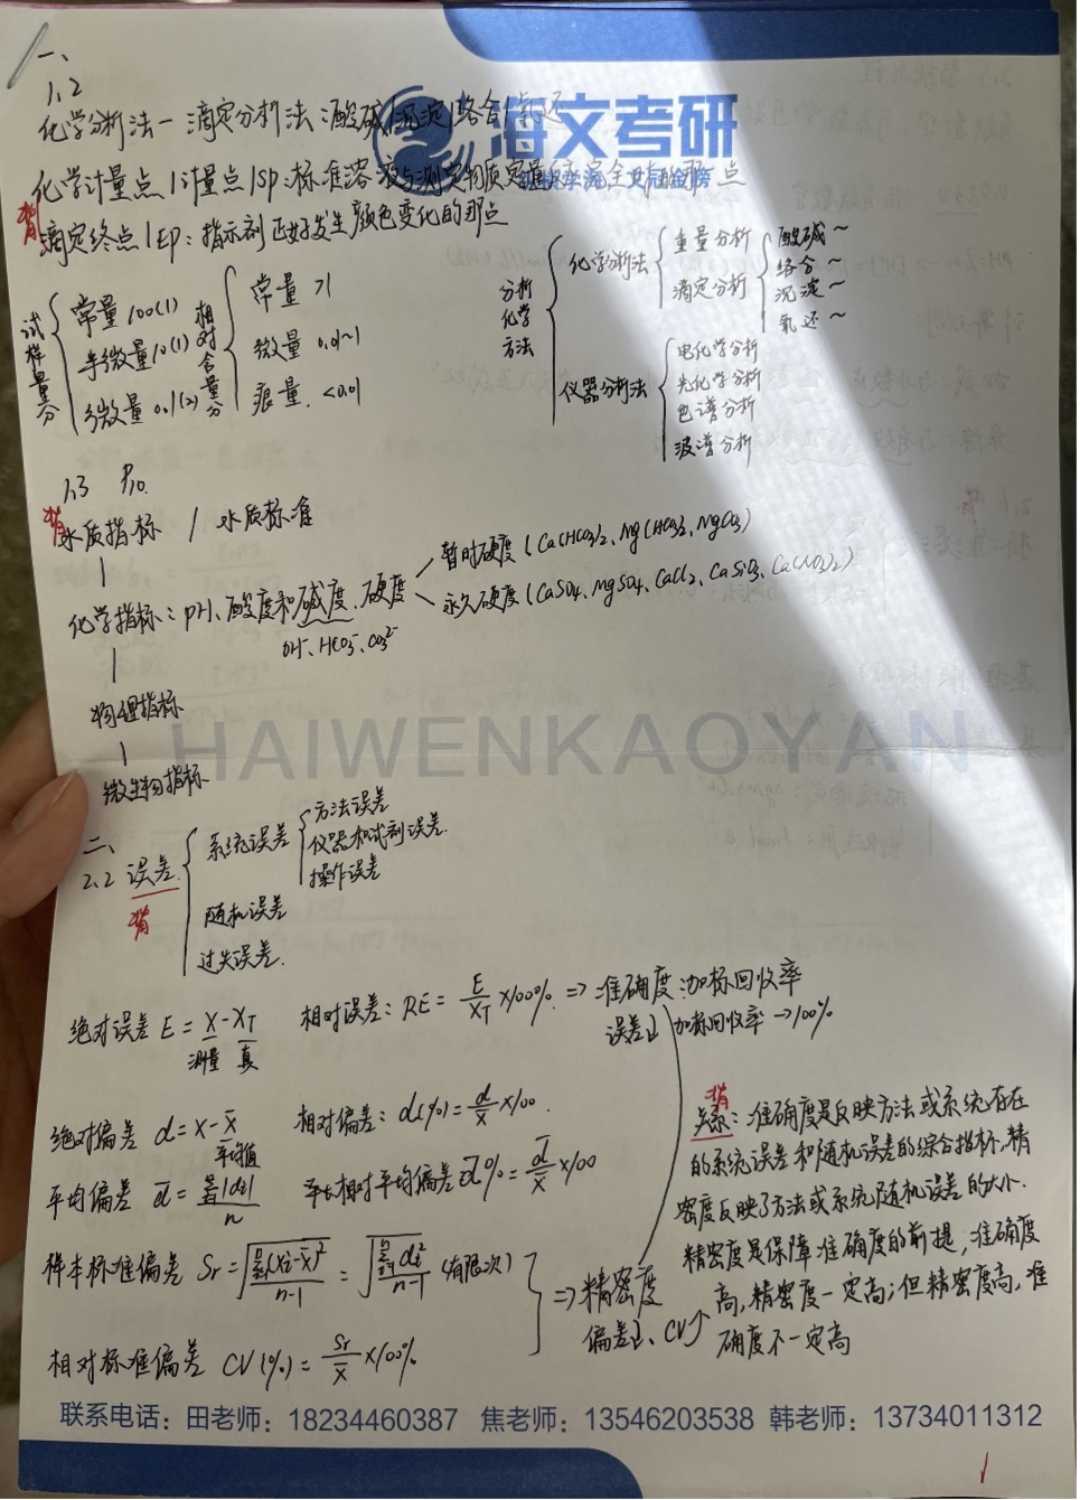 一、
1.2
海文考研
化学分析法一滴定分析法:酸碱/沉淀/络合/氧还
化学计量点/计量点/sp:标准溶液与测定物质定量 完全 那一点
背
滴定终点/EP:指示剂正好发生颜色变化的那点
试样量分 常量100(1) 半微量10(1) 微量0.1(2)
相对含量分 常量 >1 微量 0.01~1 痕量 <0.01
分析化学方法
化学分析法 重量分析 滴定分析
酸碱~
络合~
沉淀~
氧还~
仪器分析法
电化学分析
光化学分析
色谱分析
波谱分析
1.3 P10.
背
水质指标 / 水质标准
化学指标:pH、酸度和碱度、硬度
OH⁻、HCO₃⁻、CO₃²⁻
暂时硬度(Ca(HCO₃)₂、Mg(HCO₃)₂、MgCO₃)
永久硬度(CaSO₄、MgSO₄、CaCl₂、CaSiO₃、Ca(NO₃)₂)
物理指标
HAIWENKAOYAN
微生物指标
二、
2.2 误差
背
系统误差
方法误差
仪器和试剂误差.
操作误差
随机误差
过失误差.
绝对误差 E = X - X_T
测量 真
相对误差: RE = E/X_T ×100% => 准确度:加标回收率
误差小 加标回收率→100%
绝对偏差 d = x - x̄
平均值
相对偏差: d(%) = d/x̄ ×100.
平均偏差 d̄ = Σ|di|/n
相对平均偏差 d̄% = d̄/x̄ ×100
样本标准偏差 Sr = √(Σ(xi-x̄)²/(n-1)) = √(Σdi²/(n-1)) (有限次)
相对标准偏差 CV(%) = Sr/x̄ ×100%
=> 精密度
偏差小、CV
背
关系:准确度是反映方法或系统存在
的系统误差和随机误差的综合指标,精
密度反映了方法或系统随机误差的大小.
精密度是保障准确度的前提;准确度
高,精密度一定高;但精密度高,准
确度不一定高
联系电话:田老师:18234460387 焦老师:13546203538 韩老师:13734011312
1